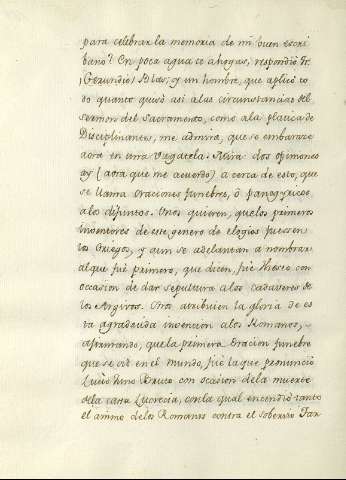 para celebrar la memoria de mi buen escri
bano? En poca agua te ahogas, respondió Fr.
Blas; y un hombre, que aplicó to
do quanto quisó asi alas circunstancias del
sermon del Sacramento, como ala platica de
Disciplinantes, me admira, que se embarace
aora en una vagatela. Mira: dos opiniones
ay (aora que me acuerdo) a cerca de esto, que
se llama oraciones funebres, ô panegyricos
alos difuntos. Unos quieren, quelos primeros
inventores de este genero de elogios fuessen
los Griegos, y aun se adelantan a nombrar
alque fue primero, que dicen, fue Theseo con
ocasion de dar sepultura alos cadaveres de
los Argivos. Otros atribuien la gloria de es
ta agradecida invencion alos Romanos,
afirmando, quela primera oracion funebre
que se oió en el mundo, fue la que pronunció
Lucio Juno Bruto con ocasion dela muerte
dela casta Lucrecia, conla qual encendió tanto
el animo delos Romanos contra el sobervio Tar